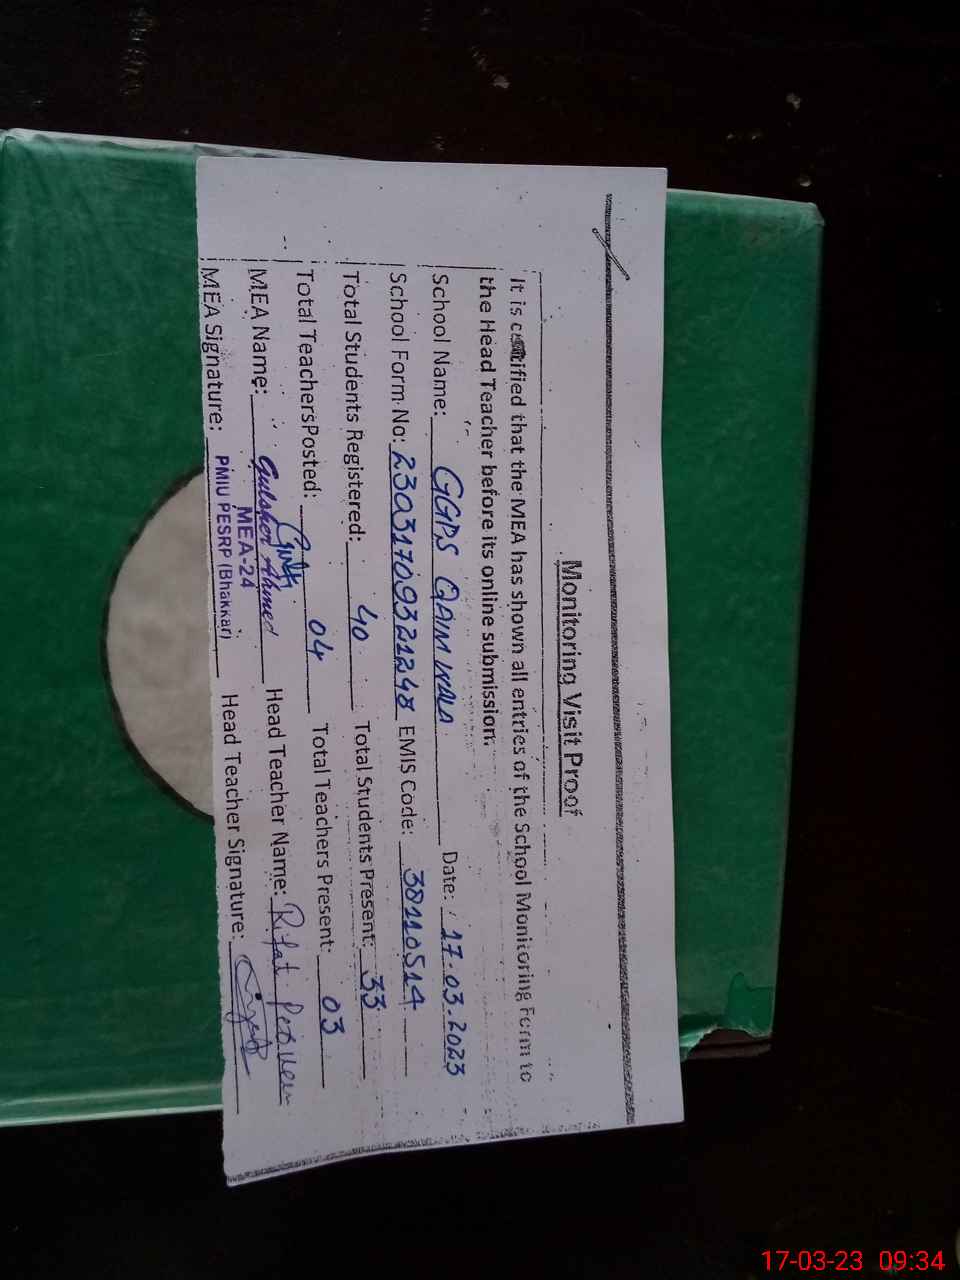 Monitoring Visit Proof
It is certified that the MEA has shown all entries of the School Monitoring Form to
the Head Teacher before its online submission.
School Name: GGPS QAIM WALA Date: 17.03.2023
School Form No: 23031709321248 EMIS Code: 38110514
Total Students Registered: 40 Total Students Present: 33
Total Teachers Posted: 04 Total Teachers Present: 03
MEA Name: Gulsher Ahmed Head Teacher Name: Rifat Parveen
MEA-24
MEA Signature: PMIU PESRP (Bhakkar) Head Teacher Signature:
17-03-23 09:34